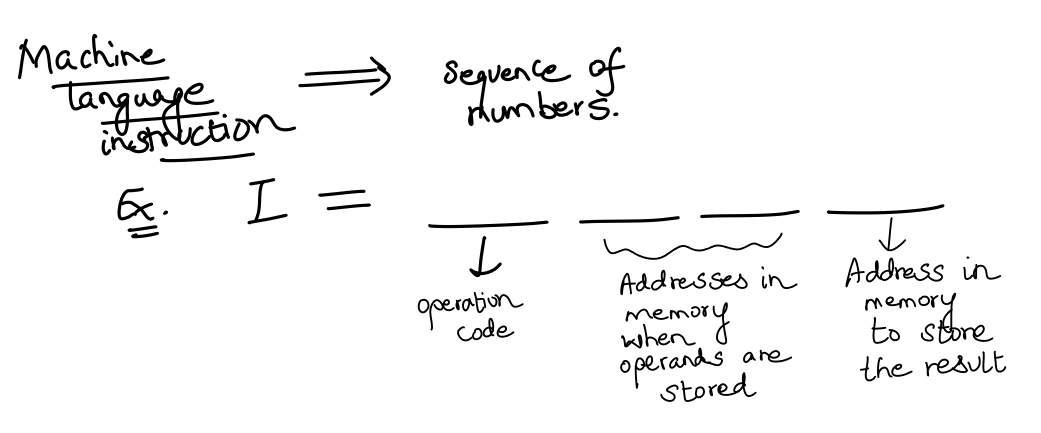 Machine
language
instruction
⟹ sequence of
numbers.
Ex. I =
operation
code
Addresses in
memory
when
operands are
stored
Address in
memory
to store
the result